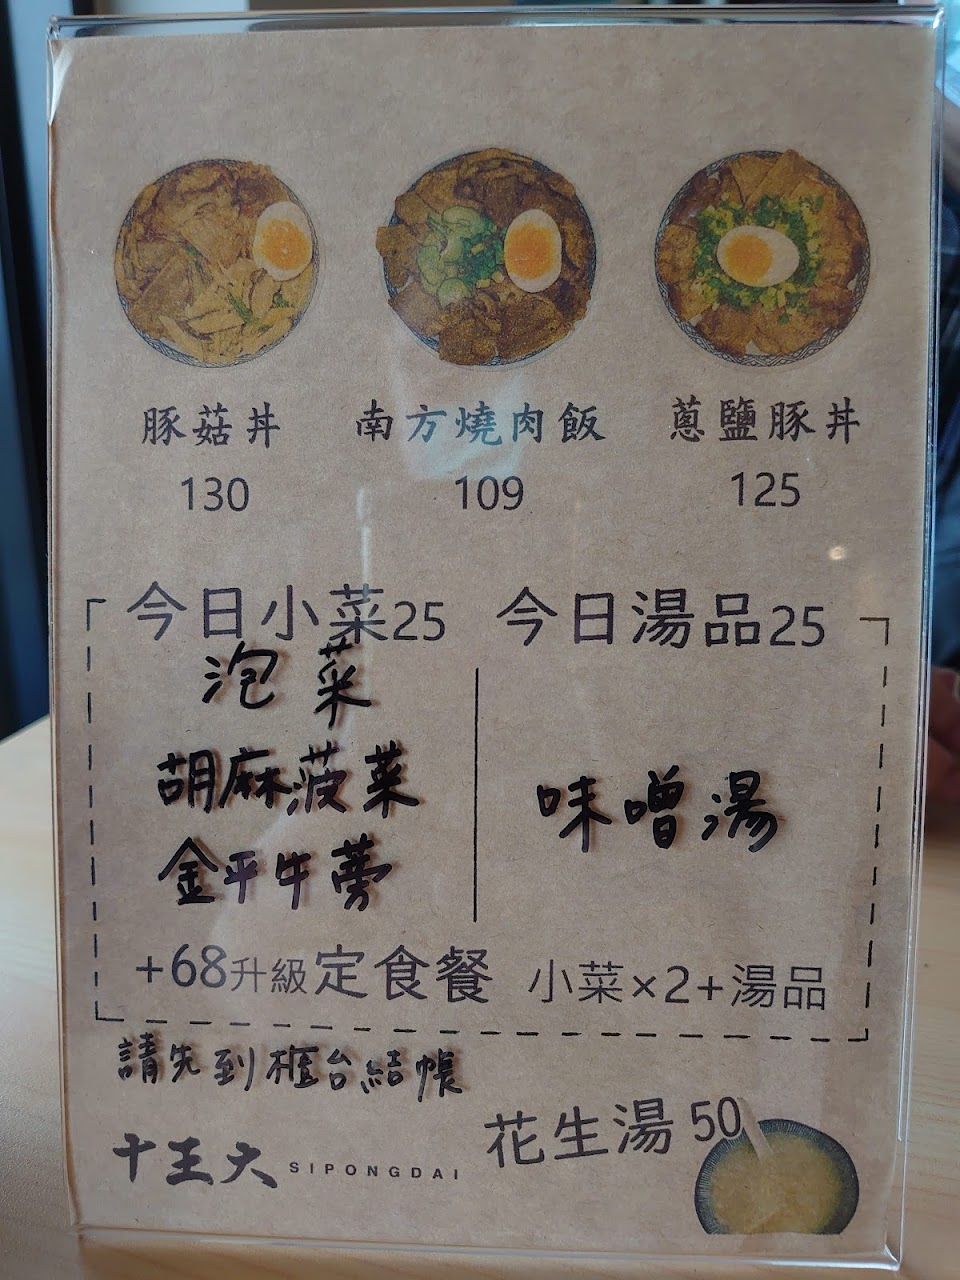 豚菇丼 南方燒肉飯 蔥鹽豚丼
130 109 125
今日小菜25 今日湯品25
泡菜
胡麻菠菜
味噌湯
金平牛蒡
+68升級定食餐 小菜×2+湯品
請先到櫃台結帳
花生湯 50
十王大 SIPONGDAI